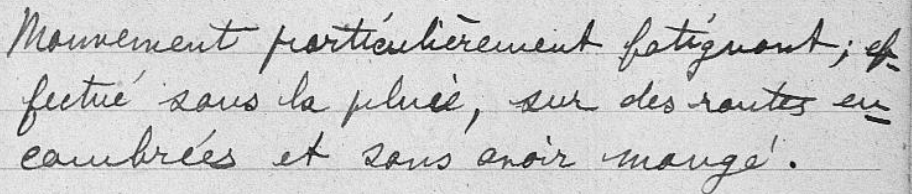 Mouvement particulièrement fatiguant; ef-
fectué sous la pluie, sur des routes en-
combrées et sans avoir mangé.